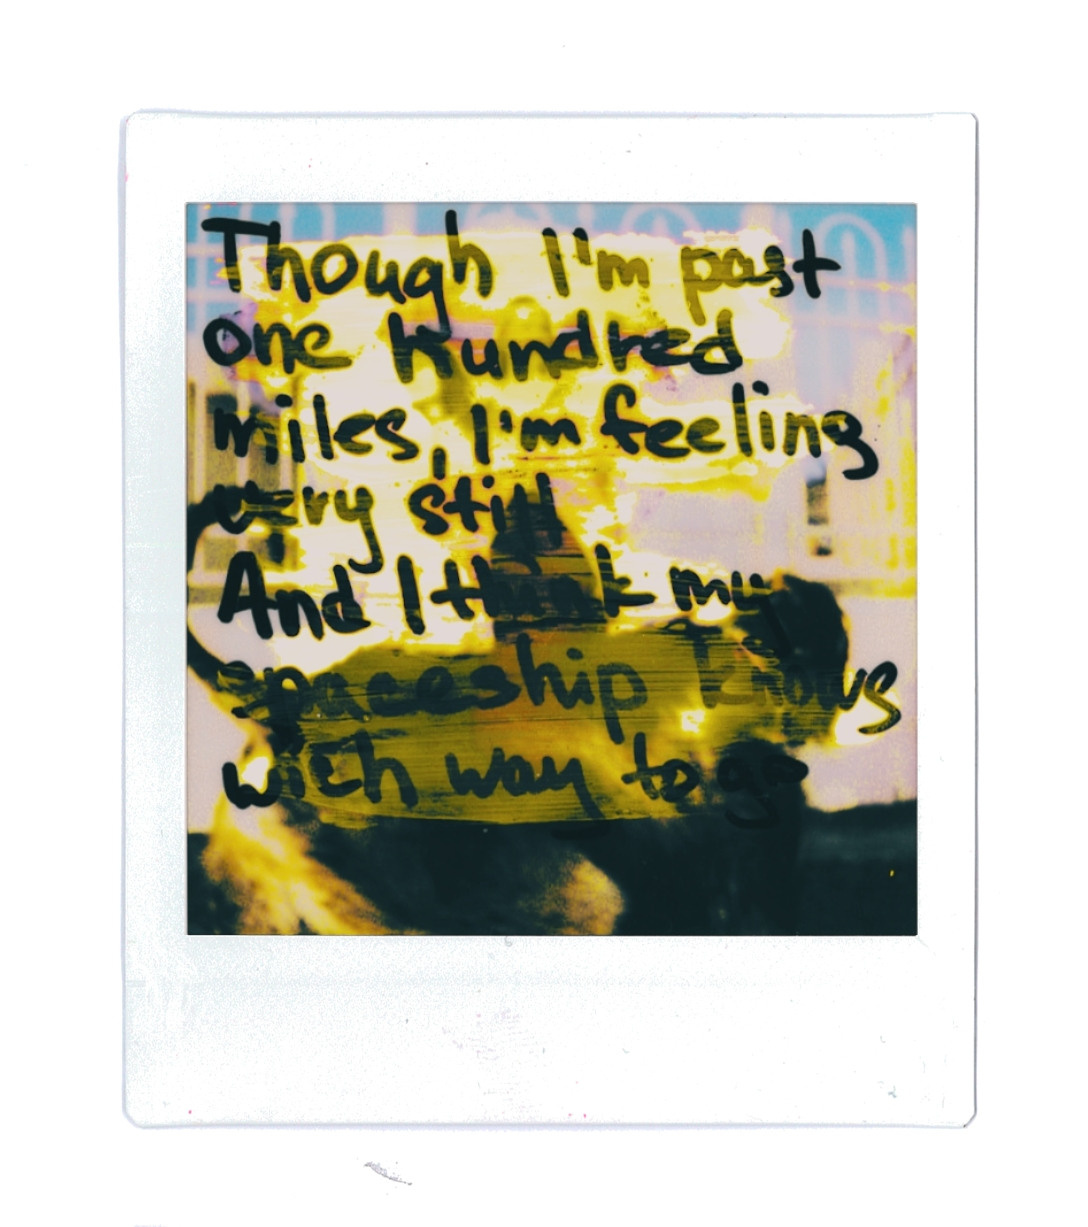 Though I'm past
one hundred
miles, I'm feeling
very still
And I think my
spaceship knows
wich way to go